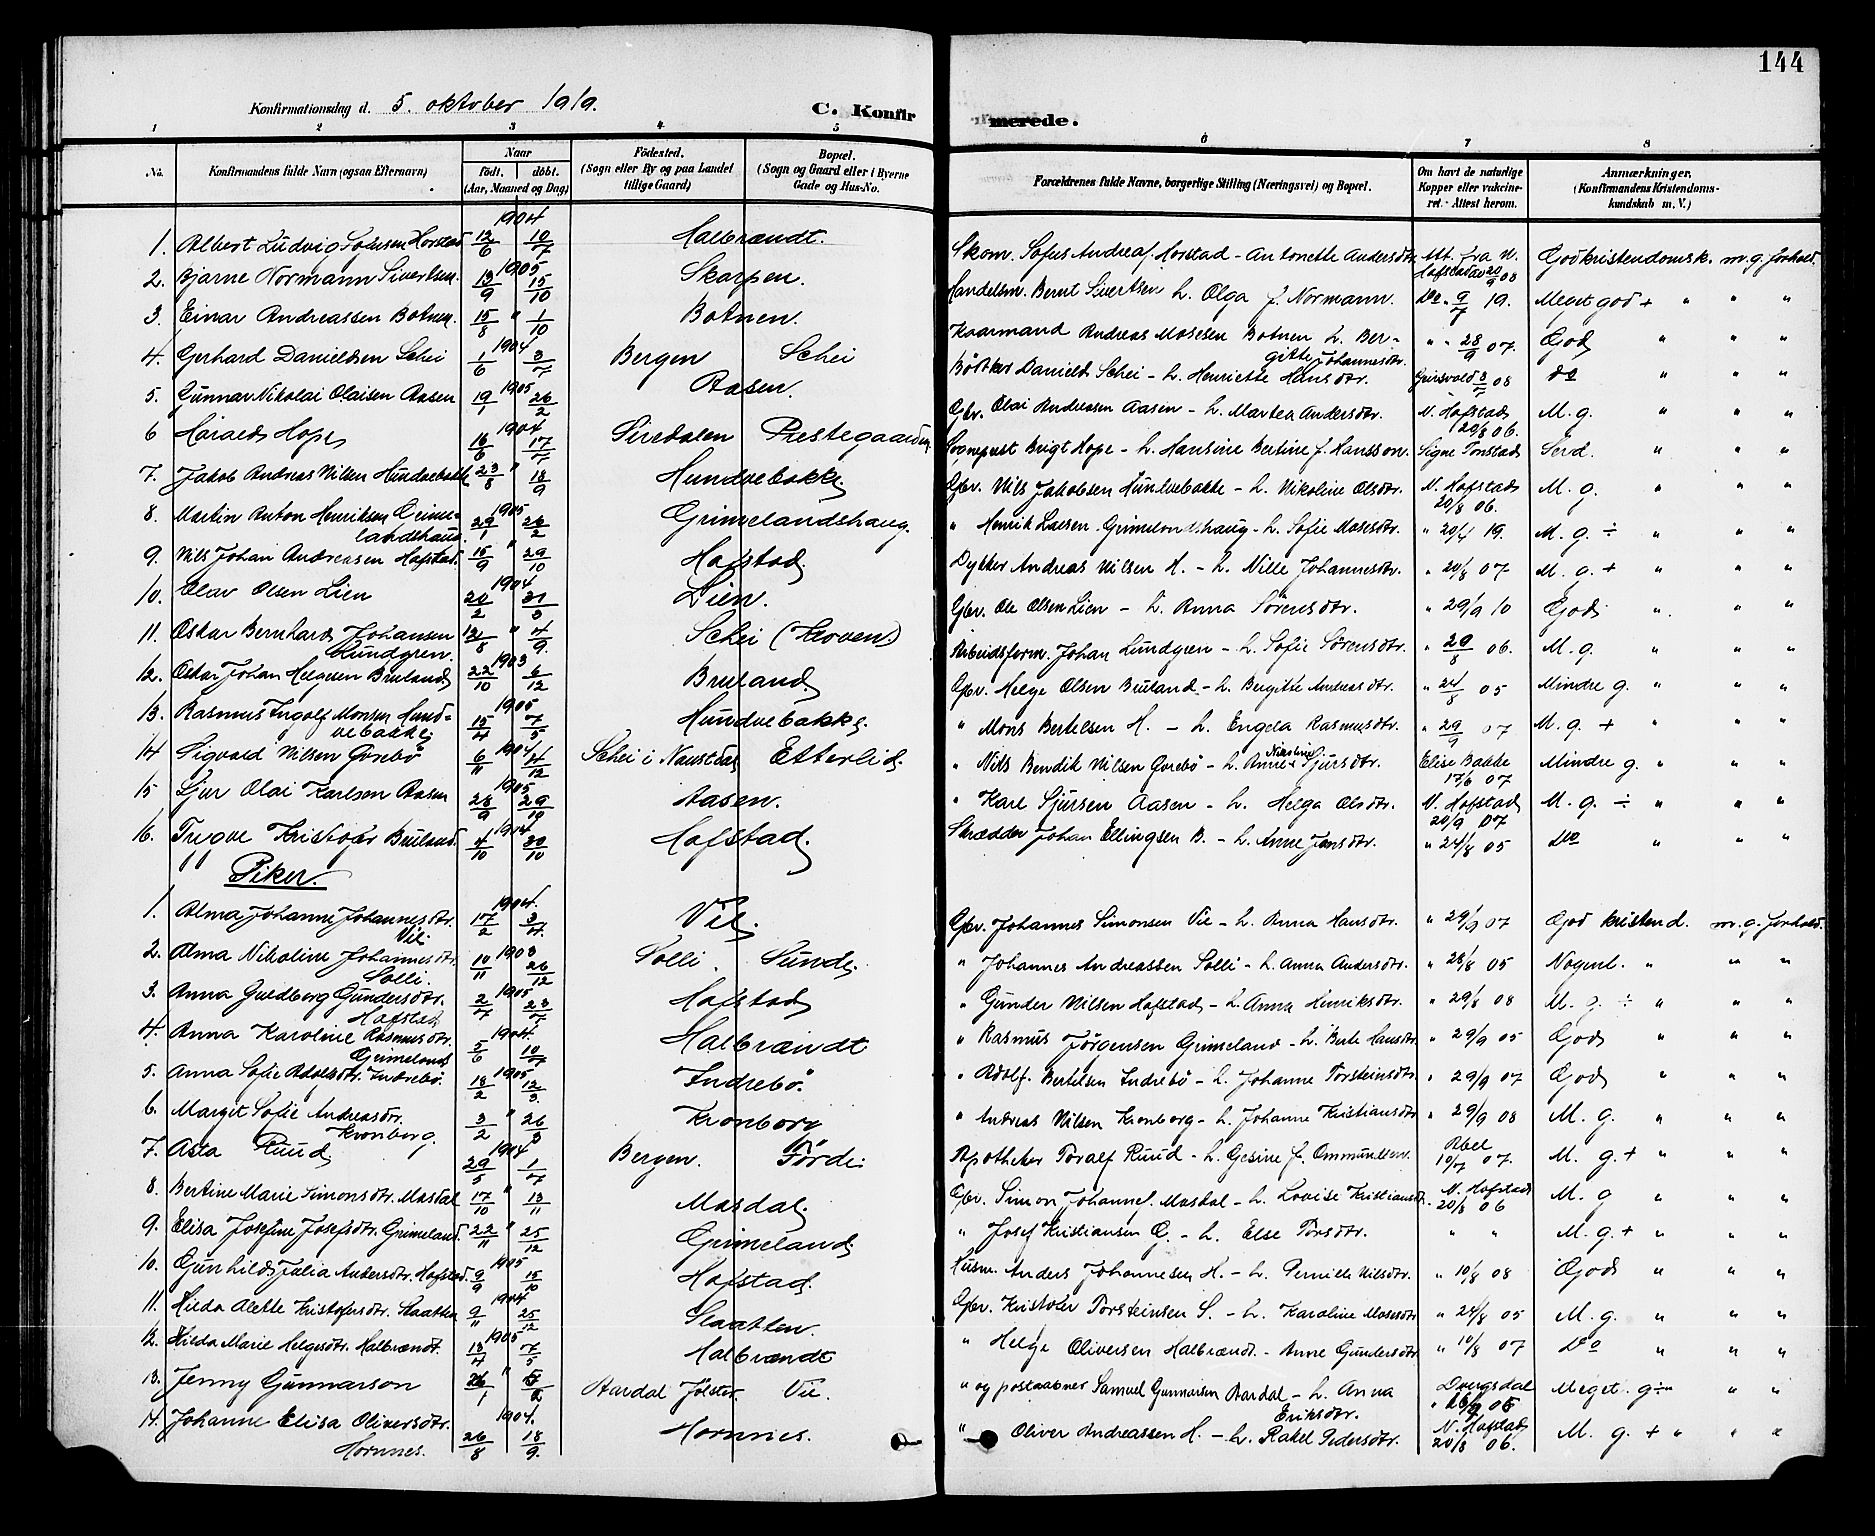 144
Konfirmationsdag d. 5. oktober 1919.
C. Konfirmerede.
1 2 3 4 5 6 7 8
No. Konfirmandens fulde Navn (ogsaa Efternavn) Naar født. døbt. (Aar, Maaned og Dag) Fødested. (Sogn eller By og paa Landet tillige Gaard) Bopæl. (Sogn og Gaard eller i Byerne Gade og Hus-No. Forældrenes fulde Navne, borgerlige Stilling (Næringsvei) og Bopæl. Om havt de naturlige Kopper eller vakcineret. Attest herom. Anmærkninger. (Konfirmandens Kristendomskundskab m. V.)
1. Albert Ludvig Sofusen Horstad 1904 12/6 10/7 Halbrændt. Skom. Sofus Andreas. Horstad - Antonette Andersdtr. Att. fra N. Hafstad av 20/9 08 God kristendomsk. m. g. forhold.
2. Bjarne Normann Sivertsen. 1905 13/9 15/10 Skarpen. Handelsm. Bernt Sivertsen h. Olga f. Normann. Do. 9/7 19. Meget god + " " "
3. Einar Andreassen Botnen. 15/8 " 1/10 Botnen. Kaarmand Andreas Mosesen Botnen h. Bergitte Johannesdtr. " " 28/9 07. God " " "
4. Gerhard Danielsen Schei 1904 1/6 3/7 Bergen Schei Bødtker Daniels Schei - h. Henriette Hansdtr. 08 do " " "
5. Gunnar Nikolai Olaisen Aasen 1905 19/1 26/2 Aasen. Gbr. Olai Andreasen Aasen - h. Martea Andersdtr. N. Hafstad 20/8 06. M. g. " " "
6 Harald Hope 1904 16/6 17/7 Siredalen Prestegaarden Sogneprest Brigt Hope - h. Hansine Bertine f. Hansson. Signe Tonstad Serd. " " "
7. Jakob Andreas Nilsen Hundvebakke 23/8 " 18/9 Hundvebakke Gbr. Nils Jakobsen Hundvebakke - h. Nikoline Olsdtr. N. Hafstad 20/8 06. M. g. " " "
8. Martin Anton Henriksen Grimelandshaug. 1905 29/1 26/2 Grimelandshaug. " Henrik Larsen Grimelandshaug - h. Sofie Mosesdtr. " 20/4 19. M. g. ÷ " " "
9. Nils Johan Andreasen Hafstad. 15/9 " 29/10 Hafstad. Dykker Andreas Nilsen H. - h. Nille Johannesdtr. " 20/8 07 M. g. + " " "
10. Olav Olsen Lien 1904 20/2 31/3 Lien. Gbr. Ole Olsen Lien - h. Anna Sørensdtr. " 29/9 10 God " " "
11. Oskar Bernhard Johansen Lundgren. 12/8 " 4/9. Schei (Kroven) Arbeidsform. Johan Lundgren - h. Sofie Sørensdtr. " 29/8 06. M. g. " " "
12. Oskar Johan Helgesen Bruland 1903 22/10 6/12 Bruland Gbr. Helge Olsen Bruland - h. Bergitte Andreasdtr. " 24/8 05 Mindre g. " " "
13. Rasmus Ingolf Monsen Hundvebakke 1905 15/4 7/5 Hundvebakke. " Mons Bertelsen H. - h. Engela Rasmusdtr. " 29/9 07 M. g. + " " "
14 Sigvald Nilsen Gvrebø 1904 6/11 4/12 Schei i Naustdal Etterlid. " Nils Bendik Nilsen Gvrebø - h. Anne Nikoline Sjursdtr. Elise Bakke 17/6 07 Mindre g. " " "
15 Sjur Olai Karlsen Aasen 1905 28/9 29/10 Aasen. " Karl Sjursen Aasen - h. Helga Olsdtr. N. Hafstad 20/9 07 M. g. ÷ " " "
16. Trygve Kristofer Bruland. 1904 4/10 30/10 Hafstad. Skrædder Johan Ellingsen B. - h. Anne Jonsdtr. " 24/8 05 Do " " "
Piker.
1. Alma Johanne Johannesdtr. Vie. 1904. 17/2 3/4. Vie. Gbr. Johannes Simonsen Vie - h. Anna Hansdtr. " 29/9 07 God kristend. m. g. forhold.
2. Alma Nikoline Johannesdtr. Solli. 1903 10/11 26/12 Solli. Sunde " Johannes Andreassen Solli - h. Anna Andersdtr. " 28/8 05 Nogenl. " " "
3. Anna Guldborg Gundersdtr. Hafstad 1905 2/7 23/7 Hafstad " Gunder Nilsen Hafstad - h. Anna Henriksdtr. " 29/8 08 M. g. ÷ " " "
4. Anna Karoline Rasmusdtr. Grimeland 1904. 5/6 10/7 Halbrændt " Rasmus Jørgensen Grimeland - h. Berte Hansdtr " 29/9 05 God " " "
5. Anna Sofie Adolfsdtr. Indrebø. 1905 18/2 12/3. Indrebø. " Adolf. Bertelsen Indrebø - h. Johanne Torsteinsdtr. " 29/9 07 God " " "
6. Margit Sofie Andreasdtr. Kronborg. 3/2 " 26/3 Kronborg " Andreas Nilsen Kronborg - h. Johanne Kristiansdtr " 29/9 08 M. g. " " "
7. Asta Ruud 1904 29/5 1/7 Bergen. Førde. Apotheker Toralf Ruud - h. Gesine f. Ommundsen. Abel 10/7 07. M. g. + " " "
8. Bertine Marie Simonsdtr. Masdal 17/10 " 13/11 Masdal. Gbr. Simon Johannes. Masdal - h. Lovise Kristiansdtr. N. Hafstad 20/8 06 M. g " " "
9. Elisa Josefine Josefsdtr. Grimeland. 22/11 " 25/12 Grimeland. " Josef Kristiansen G. - h. Else Torsdtr. " " M. g. + " " "
10. Gunhild Julia Andersdtr. Hafstad. 1905 9/9 15/10 Hafstad. Husm. Anders Johannesen H. - h. Pernille Nilsdtr. " 10/8 08 God " " "
11. Hilda Alette Kristofersdtr. Slaatten 1904 9/11 25/12 Slaatten. Gbr. Kristofer Torsteinsen S. - h. Karoline Mosesdtr " 24/8 05 M. g. " " "
12. Hilda Marie Helgesdtr. Halbrændt. 1905 13/4 7/5 Halbrændt " Helge Oliversen Halbrændt. - Anne Gundersdtr " 10/8 07 Do " " "
13. Jenny Gunnarson 26/1 " Aardal Jølster. Vie. " og postaabner Samuel Gunnarson Aardal - h. Anna Eriksdtr. Meget. g ÷ " " "
14. Johanne Elisa Oliversdtr. Hornnes. 1904. 26/8 18/9. Hornnes. " Oliver Andreassen H. - h. Rakel Pedersdtr. N. Hafstad 20/8 06. M. g. + " " "